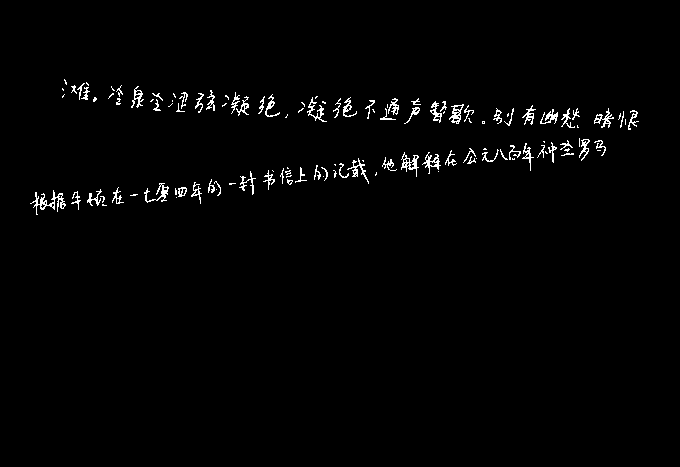 滩。冷泉冷涩弦凝绝，凝绝不通声暂歇。别有幽愁暗恨
根据牛顿在一七零四年的一封书信上的记载，他解释在公元八百年神圣罗马